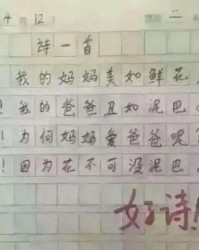 4 12 二
诗一首
我的妈妈美如鲜花，
！我的爸爸丑如泥巴。
！为何妈妈爱爸爸呢？
！因为花不可没泥巴。
好诗！